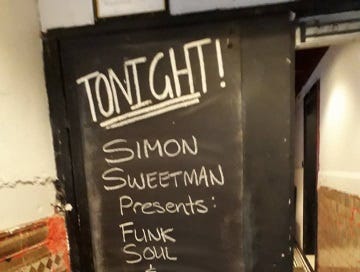 TONIGHT!
SIMON
SWEETMAN
Presents:
FUNK
SOUL